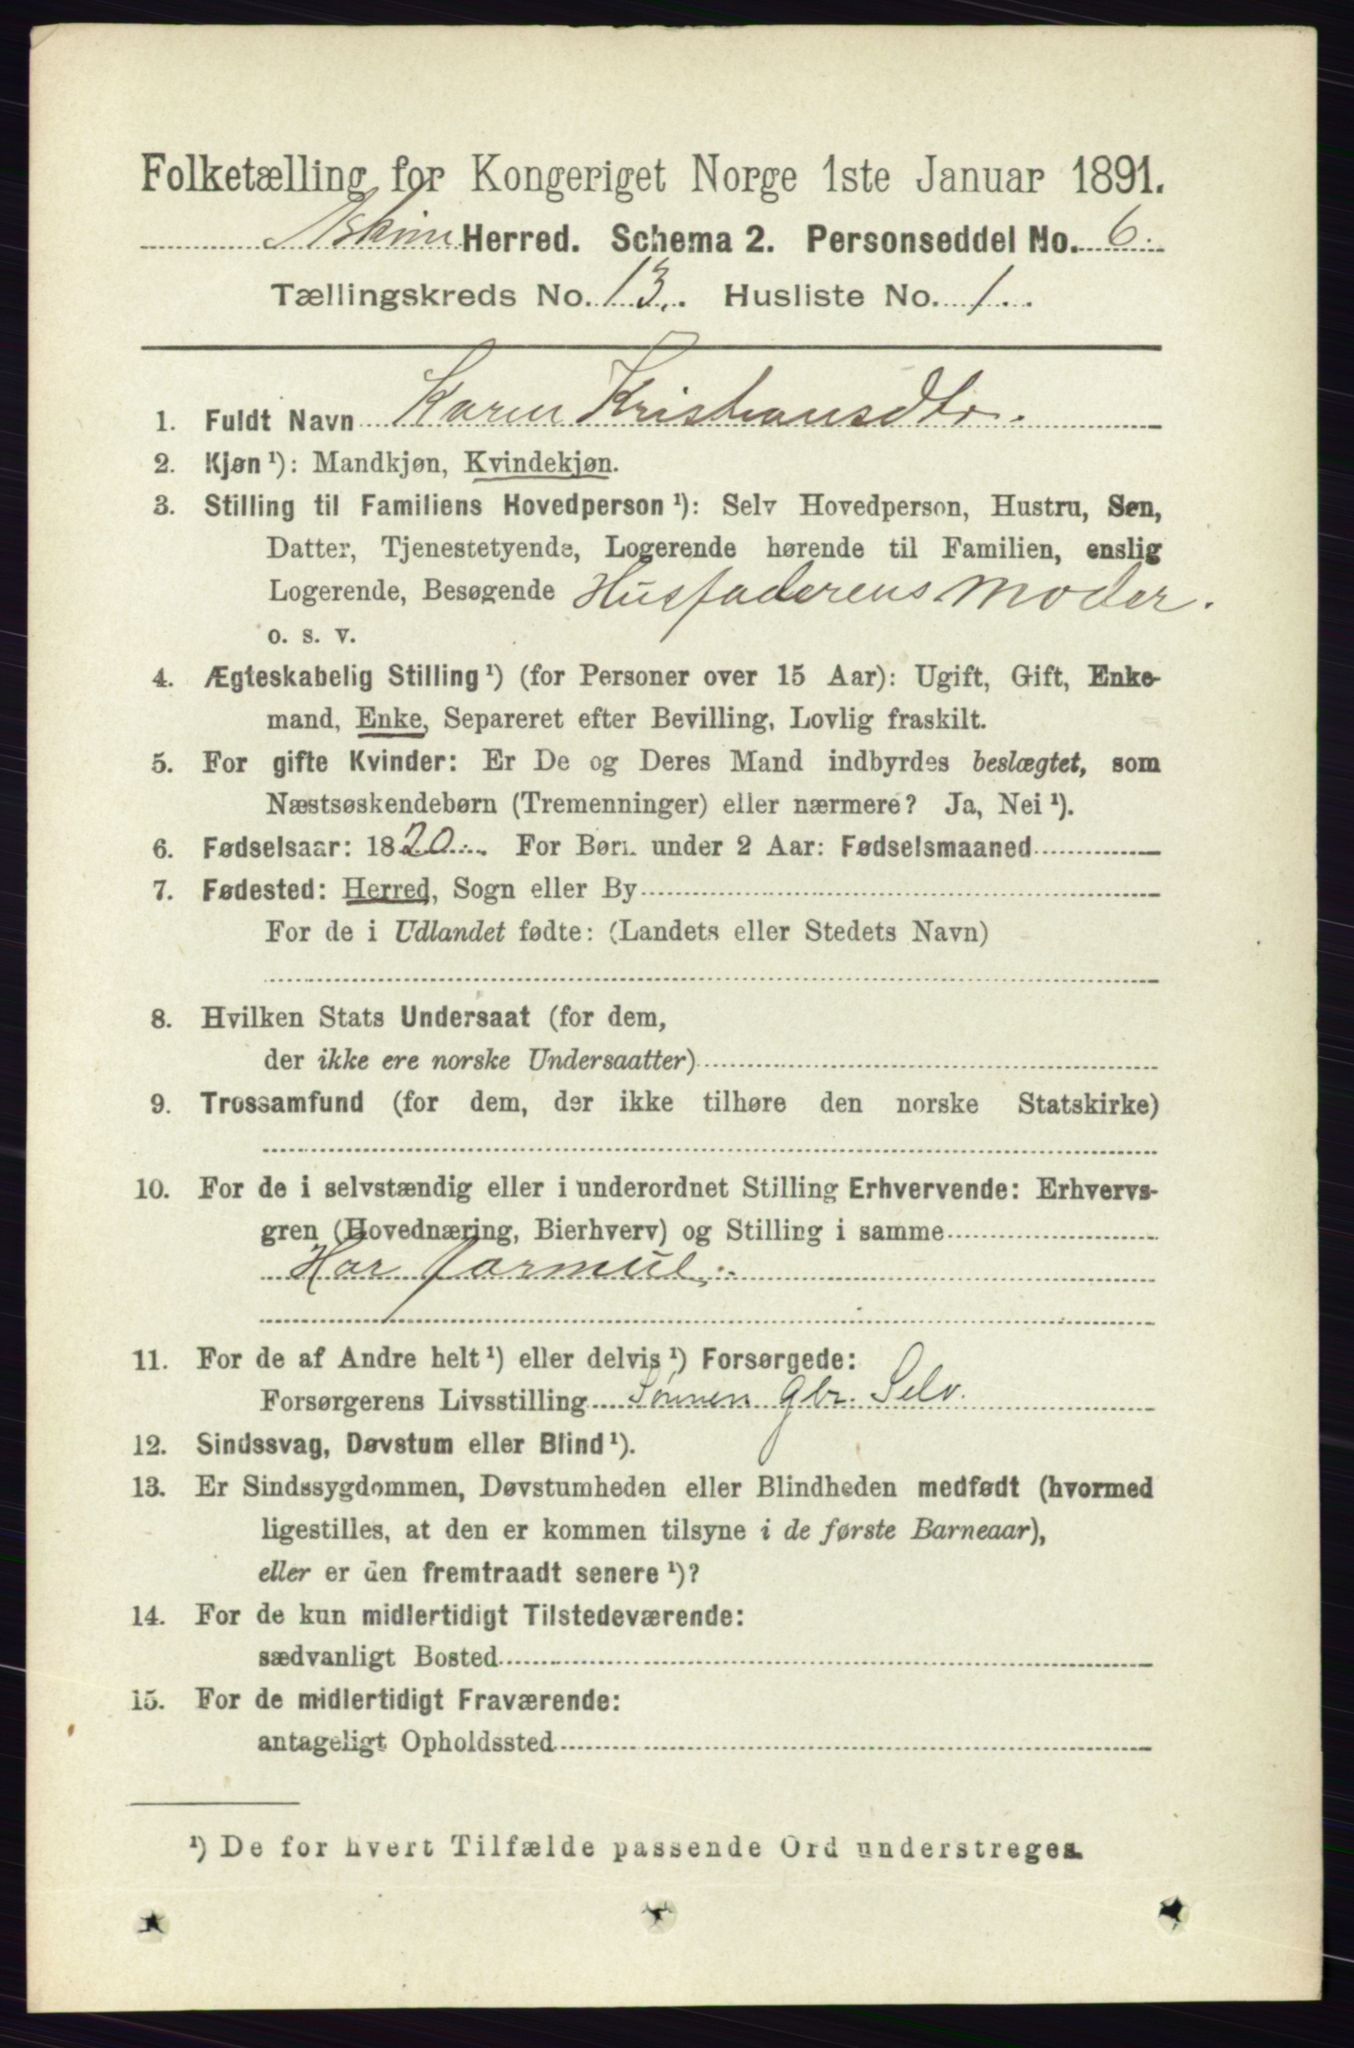 Folketælling for Kongeriget Norge 1ste Januar 1891.
Askim Herred. Schema 2. Personseddel No. 6.
Tællingskreds No. 13. Husliste No. 1.
1. Fuldt Navn Karen Kristiansdtr.
2. Kjøn ¹): Mandkjøn, Kvindekjøn.
3. Stilling til Familiens Hovedperson ¹): Selv Hovedperson, Hustru, Søn,
Datter, Tjenestetyende, Logerende hørende til Familien, enslig
Logerende, Besøgende Husfaderens Moder.
o. s. v.
4. Ægteskabelig Stilling ¹) (for Personer over 15 Aar): Ugift, Gift, Enke-
mand, Enke, Separeret efter Bevilling, Lovlig fraskilt.
5. For gifte Kvinder: Er De og Deres Mand indbyrdes beslægtet, som
Næstsøskendebørn (Tremenninger) eller nærmere? Ja, Nei ¹).
6. Fødselsaar: 1820. For Børn under 2 Aar: Fødselsmaaned
7. Fødested: Herred, Sogn eller By
For de i Udlandet fødte: (Landets eller Stedets Navn)
8. Hvilken Stats Undersaat (for dem,
der ikke ere norske Undersaatter)
9. Trossamfund (for dem, der ikke tilhøre den norske Statskirke)
10. For de i selvstændig eller i underordnet Stilling Erhvervende: Erhvervs-
gren (Hovednæring, Bierhverv) og Stilling i samme
Har formue.
11. For de af Andre helt ¹) eller delvis ¹) Forsørgede:
Forsørgerens Livsstilling Sønnen Gbr. Selv.
12. Sindssvag, Døvstum eller Blind ¹).
13. Er Sindssygdommen, Døvstumheden eller Blindheden medfødt (hvormed
ligestilles, at den er kommen tilsyne i de første Barneaar),
eller er den fremtraadt senere ¹)?
14. For de kun midlertidigt Tilstedeværende:
sædvanligt Bosted
15. For de midlertidigt Fraværende:
antageligt Opholdssted
¹) De for hvert Tilfælde passende Ord understreges.